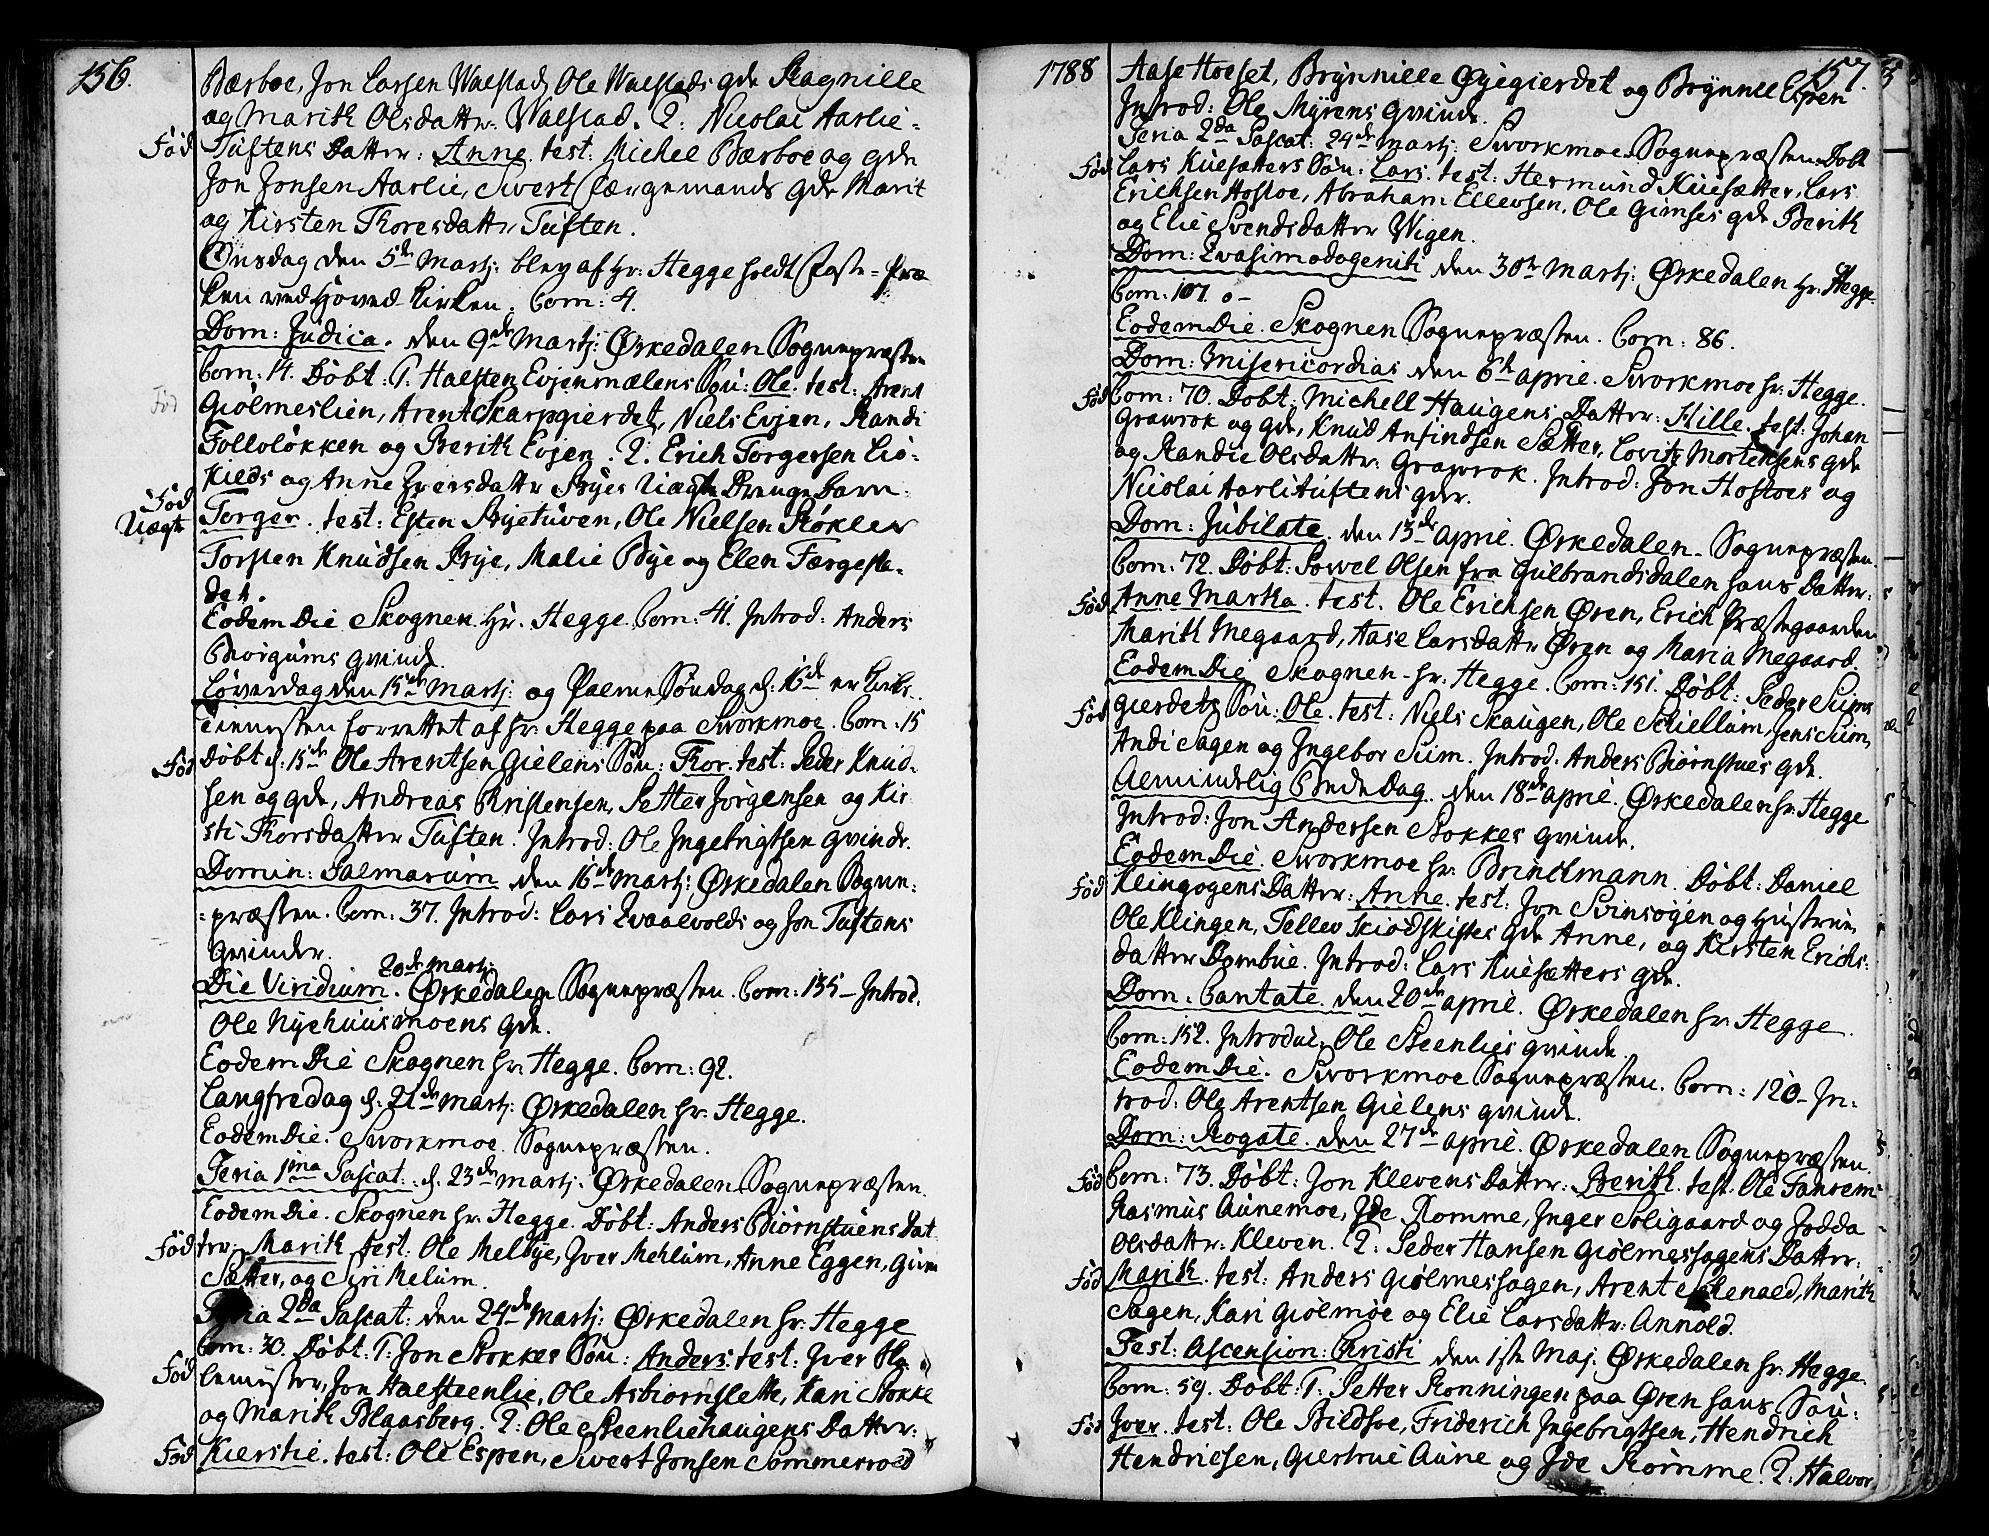 156.
Bærboe, Jon Larsen Walstad, Ole Walstads qde Ragnille
og Marith Olsdattr. Walstad. 2: Nicolai Aarlie-
Fød Tuftens Datter: Anne. test: Michel Bærboe og qde
Jon Jonsen Aarlie, Sivert Færgemands qde Marit
og Kirsten Thoresdattr Tuften.
Onsdag den 5de Martj: blev af Hr: Hegge holdt Faste-Præ
ken ved Hoved Kirken. Com: 4.
Dom: Judica. den 9de Martj: Ørkedalen Sognepræsten
Com: 14. Døbt: 1. Halsten Evjenmælens Søn: Ole. test: Arent
Fød Giølmeslien, Arent Skarpgierdet, Niels Evjen, Randi
Folloløkken og Berith Evjen. 2. Erich Torgersen Liø-
Kilds og Anne Iversdattr Byes Uægte Drenge Barn:
Fød Uægte Torger. test: Esten Byetuven, Ole Nielsen Røkler
Torsten Knudsen Bye, Malie Bye og Elen Færgesta-
det.
Eodem Die Skognen Hr. Hegge. Com: 41. Introd: Anders
Biorgums qvinde.
Løverdag den 15de Martj: og Palme Søndag d: 16de er Kirke
Tienesten forrettet af Hr: Hegge paa Svorkmoe. Com: 15
Fød Døbt d: 15de Ole Arentsen Gielens Søn: Thor. test: Peder Knud-
sen og qde, Andreas Christensen, Petter Jørgensen og Kir
sti Thorsdatter Tuften. Introd: Ole Ingebrigtsen qvinde.
Domin: Palmarum den 16de Martj: Ørkedalen Sogne-
præsten. Com: 37. Introd: Lars Qvaalvolds og Jon Tuftens
qvinder.
20de Martj:
Die Viridium. Ørkedalen Sognepræsten. Com: 135 - Introd.
Ole Nyehuusmoens qde.
Eodem Die Skognen hr. Hegge. Com: 92.
Langfredag d: 21de Martj: Ørkedalen hr. Hegge.
Eodem Die. Svorkmoe. Sognepræsten.
Feria 1ma Pascat: d. 23de Martj. Ørkedalen Sognepræsten.
Eodem Die. Skognen hr. Hegge. Døbt: Anders Biørnstuens Dat
Fød ter: Marith test: Ole Melbye, Iver Mehlum, Anne Eggen, Guru
Sætter, og Siri Melum.
Feria 2da Pascat: den 24de Martj: Ørkedalen hr: Hegge
Com: 30. Døbt: 1: Jon Stokkes Søn: Anders. test: Iver
Fød Jon Halsteenlie, Ole Asbiørnslette, Kari Stokke
og Marith Blaasberg. 2: Ole Steenliehaugens Datter:
Fød Kierstie. test: Ole Espen, Sivert Jonsen Sommervold
1788
157.
Aase Hoeset, Brynnille Øyegierdet og Brynnel Espen
Introd: Ole Myrens qvinde.
Feria 2da Pascat: 24de Martj: Svorkmoe Sognepræsten Døbt
Fød Lars Kuesætters Søn: Lars. test: Hermund Kuesætter, Lars
Erichsen Hostoe, Abraham Ellevsen, Ole Gimses qde Berith
og Elie Svendsdatter Wigen.
Dom: Qvasimodogeniti den 30te Martj: Ørkedalen hr. Hegge.
Com: 107. o-
Eodem Die. Skognen Sognepræsten. Com: 86.
Dom: Misericordias den 6te April. Svorkmoe hr. Hegge.
Fød Com: 70. Døbt: Michell Haugens Datter: Kille. test: Johan
Grawrok og qde, Knud Anfindsen Sætter, Lovitz Mortensens qde
og Randie Olsdattr: Grawrok. Introd: Jon Hostoes og
Nicolai Aarlituftens qder.
Dom: Jubilate. den 13de April. Ørkedalen. Sognepræsten.
Com: 72. Døbt: Powel Olsen fra Gulbrandsdalen hans Datter:
Fød Anne Marta. test. Ole Erichsen Øren, Erich Præstegaarden
Marith Megaard, Aase Larsdattr Øren og Maria Megaard.
Eodem Die. Skognen hr. Hegge. Com: 151. Døbt: Peder Sums
Fød gierdets Søn: Ole. test: Niels Skaugen, Ole Schiellum, Jens Sum,
Andi Sagen og Ingebor Sum. Introd. Anders Biørnstues qde.
Almindelig Bede Dag. den 18de April. Ørkedalen hr: Hegge
Introd: Jon Andersen Stokkes qvinde.
Eodem Die. Svorkmoe hr. Brinchmann. Døbt: Daniel
Fød Klingøgens Datter: Anne. test: Jon Svinsøgen og Hustrue,
Ole Klingen, Tellev Skiødskiftes qde Anne, og Kirsten Erichs-
datter Dombue. Introd: Lars Kuesætters qde.
Dom: Cantate. den 20de April. Ørkedalen hr. Hegge.
Com: 152. Introduc. Ole Steenlies qvinde.
Eodem Die. Svorkmoe Sognepræsten. Com: 120 - In-
trod: Ole Arentsen Gielens qvinde.
Dom: Rogate. den 27de April. Ørkedalen Sognepræsten.
Fød Com: 73. Døbt: Jon Klevens Datter: Berith. test: Ole Fandrem
Rasmus Aunemoe, Ide Romme, Inger Soligaard og Jodda
Olsdattr: Kleven. 2: Peder Hansen Giølmeshagens Datter:
Fød Marith. test: Anders Giølmeshagen, Arent Skenald, Marith
Sagen, Kari Giølmøe og Elie Larsdattr: Annold.
Fest: Ascension: Christi den 1ste Maj. Ørkedalen hr: Hegge.
Com: 59. Døbt: 1: Petter Ronningen paa Øren hans Søn:
Fød Iver. test: Ole Bildsoe, Friderich Ingebrigtsen, Hendrich
Hendricsen, Giertrue Aune og Ide Romme. 2. Halvor